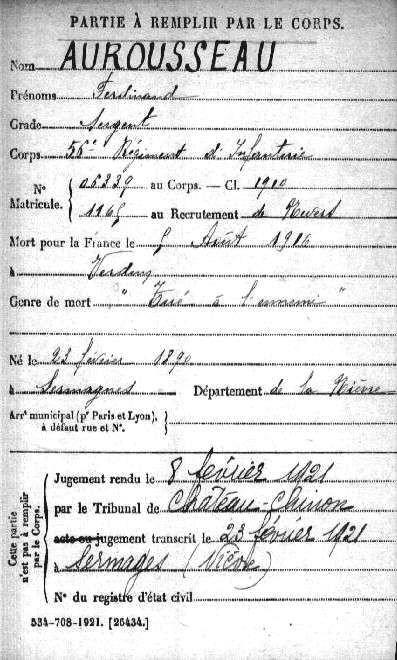 PARTIE À REMPLIR PAR LE CORPS.
Nom AUROUSSEAU
Prénoms Ferdinand
Grade Sergent
Corps 56e Régiment d'Infanterie
N° Matricule. { 06339 au Corps. — Cl. 1910
1165 au Recrutement de Nevers
Mort pour la France le 5 Août 1916
à Verdun
Genre de mort "Tué à l'ennemi"
Né le 23 février 1890
à Sermagnes Département de la Nièvre
Arrt municipal (pr Paris et Lyon), à défaut rue et N°. }
Cette partie n'est pas à remplir par le Corps. {
Jugement rendu le 8 février 1921
par le Tribunal de Château-Chinon
acte ou jugement transcrit le 23 février 1921
à Sermages (Nièvre)
N° du registre d'état civil
534-708-1921. [26434.]